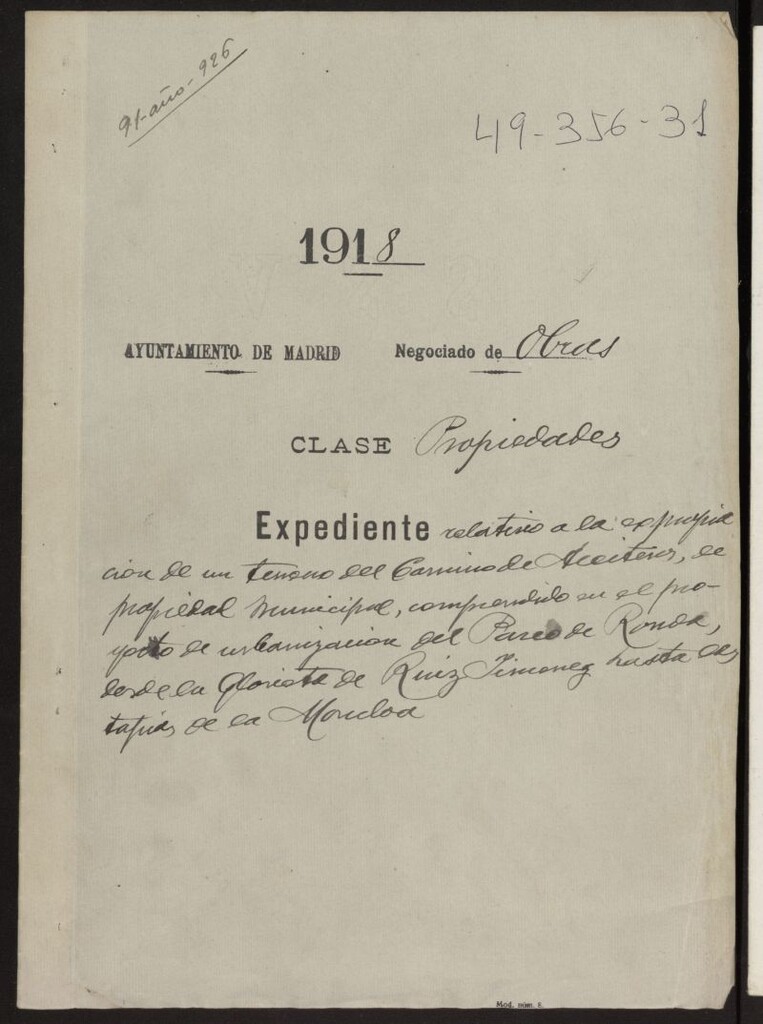 91-año-926
49-356-31
1918
AYUNTAMIENTO DE MADRID Negociado de Obras
CLASE Propiedades
Expediente relativo a la expropia
cion de un terreno del Camino de Aceiteros, de
propiedad Municipal, comprendido en el pro-
yecto de urbanizacion del Paseo de Ronda,
desde la Glorieta de Ruiz Jimenez hasta las
tapias de la Moncloa
Mod. núm. 8.